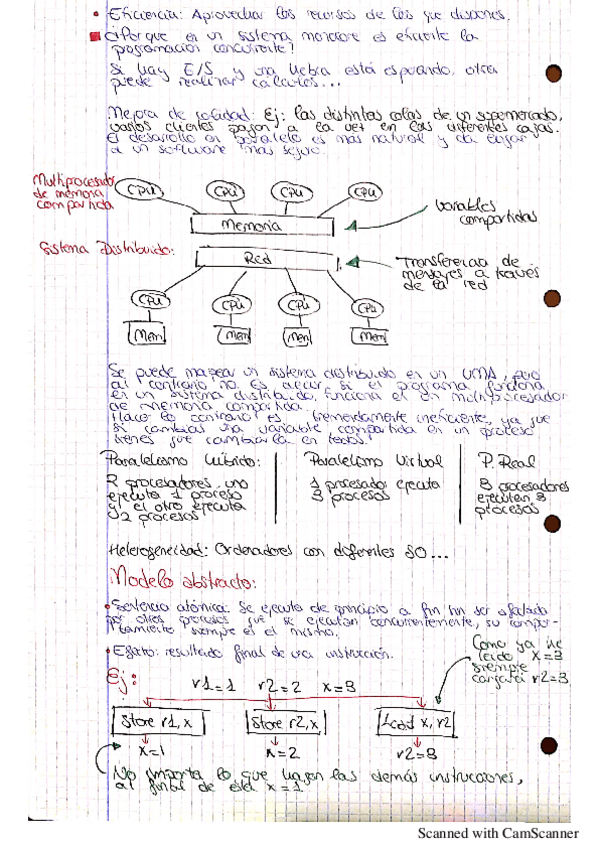 • Eficiencia: Aprovechar los recursos de los que dispones.
¿Porque en un sistema monocore es eficiente la
programación concurrente?
Si hay E/S y una hebra está esperando, otra
puede realizar cálculos...
Mejora de calidad: Ej: las distintas colas de un supermercado,
varios clientes pagan a la vez en las diferentes cajas.
El desarrollo en paralelo es más natural y da lugar
a un software más seguro.
Multiprocesador
de memoria
compartida
CPU CPU CPU CPU
Memoria
Variables
compartidas
Sistema Distribuido:
Red
Transferencia de
mensajes a través
de la red
CPU CPU CPU CPU
Mem Mem Mem Mem
Se puede mapear un sistema distribuido en un UMA, pero
al contrario no. Es decir, si el programa funciona
en un sistema distribuido, funciona en multiprocesador
de memoria compartida.
Hacer lo contrario es tremendamente ineficiente, ya que
si cambias una variable compartida en un proceso
tienes que cambiarla en todos.
Paralelismo híbrido: Paralelismo Virtual P. Real
2 procesadores, uno 1 procesador ejecuta 3 procesadores
ejecuta 1 proceso 3 procesos ejecutan 3
y el otro ejecuta procesos
2 procesos
Heterogeneidad: Ordenadores con diferentes SO...
Modelo abstracto:
• Sentencia atómica: Se ejecuta de principio a fin sin ser afectado
por otros procesos que se ejecutan concurrentemente, su compor-
tamiento siempre es el mismo.
• Efecto: resultado final de una instrucción.
Como ya he
leído x=3
siempre
cargará r2=3
Ej:
r1=1 r2=2 x=3
Store r1, x Store r2, x Load x, r2
x=1 x=2 r2=3
No importa lo que hagan las demás instrucciones,
al final de esta x=1
Scanned with CamScanner